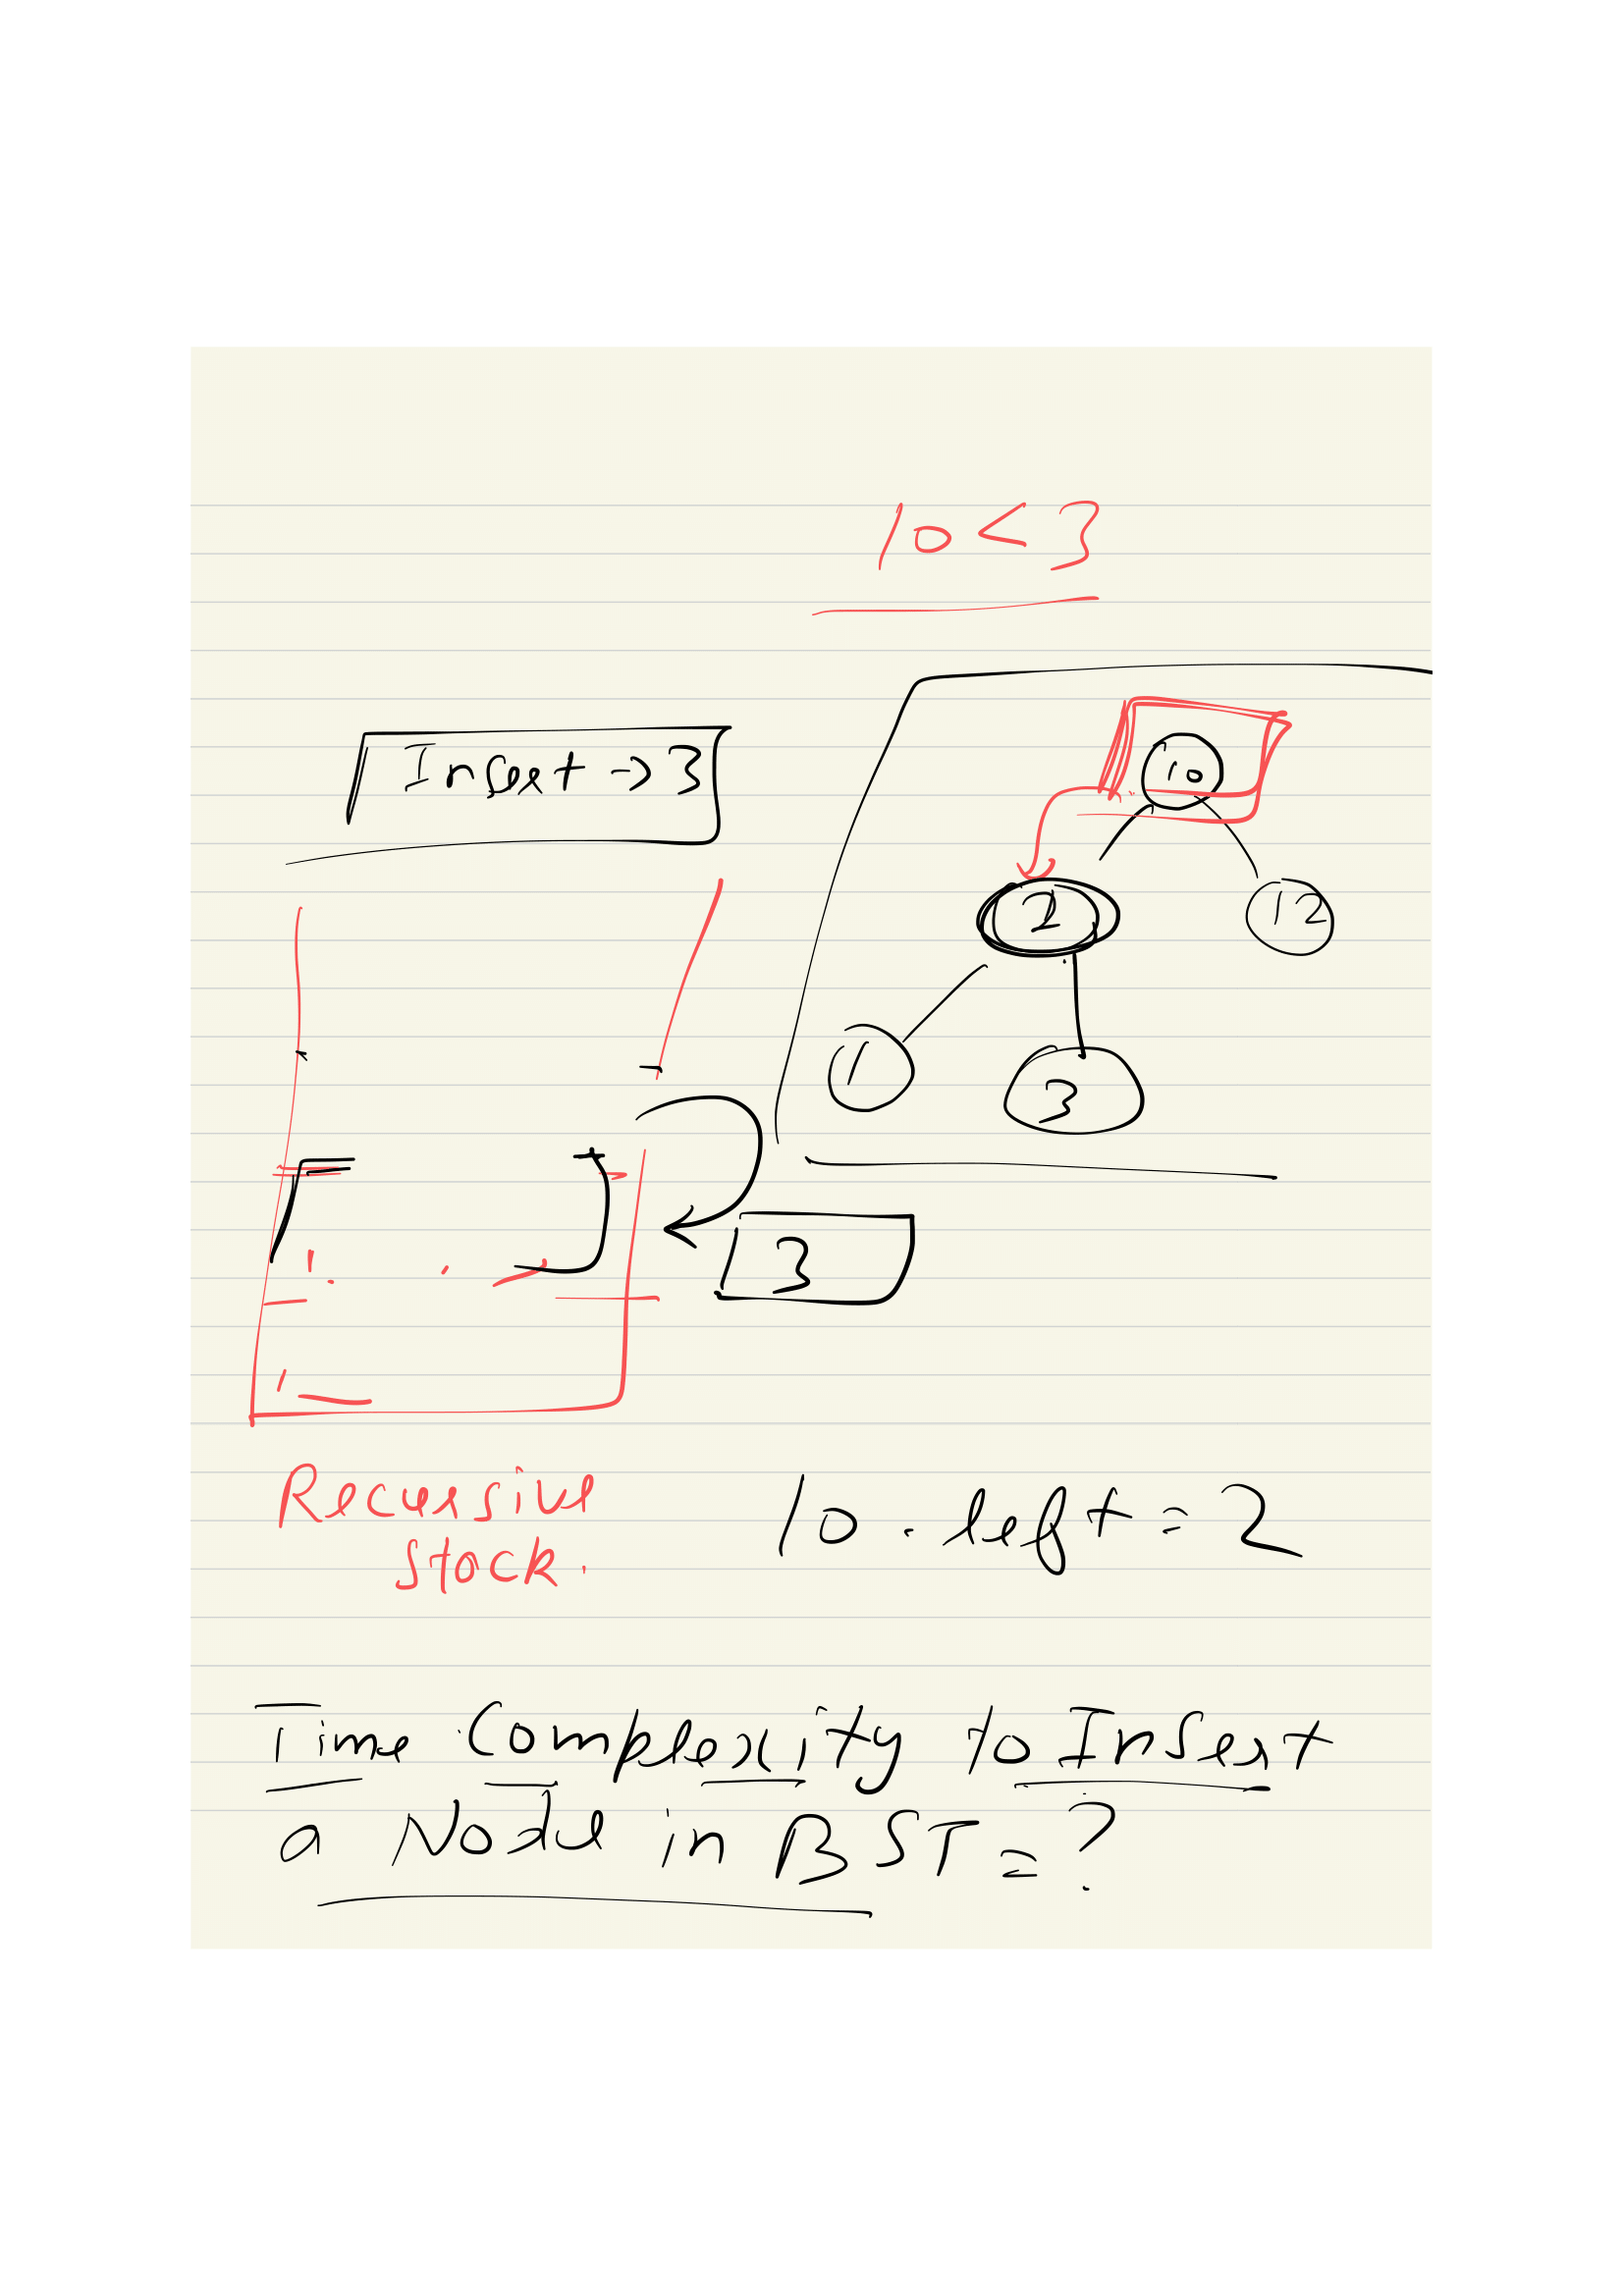 10 < 3
Insert -> 3
10
2
12
1
3
3
Recursive
stack.
10.left = 2
Time Complexity to Insert
a Node in BST = ?